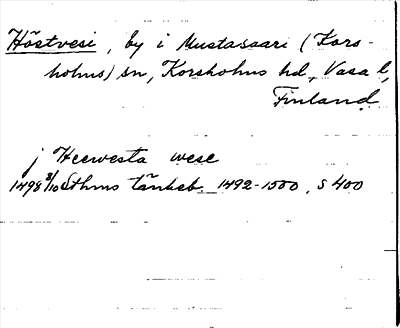 Höstvesi, by i Mustasaari (Kors-
holms) sn, Korsholms hd, Vasa l,
Finland
j Heewesta wese
1498 8/10 Sthms tänkeb. 1492-1500, s 400